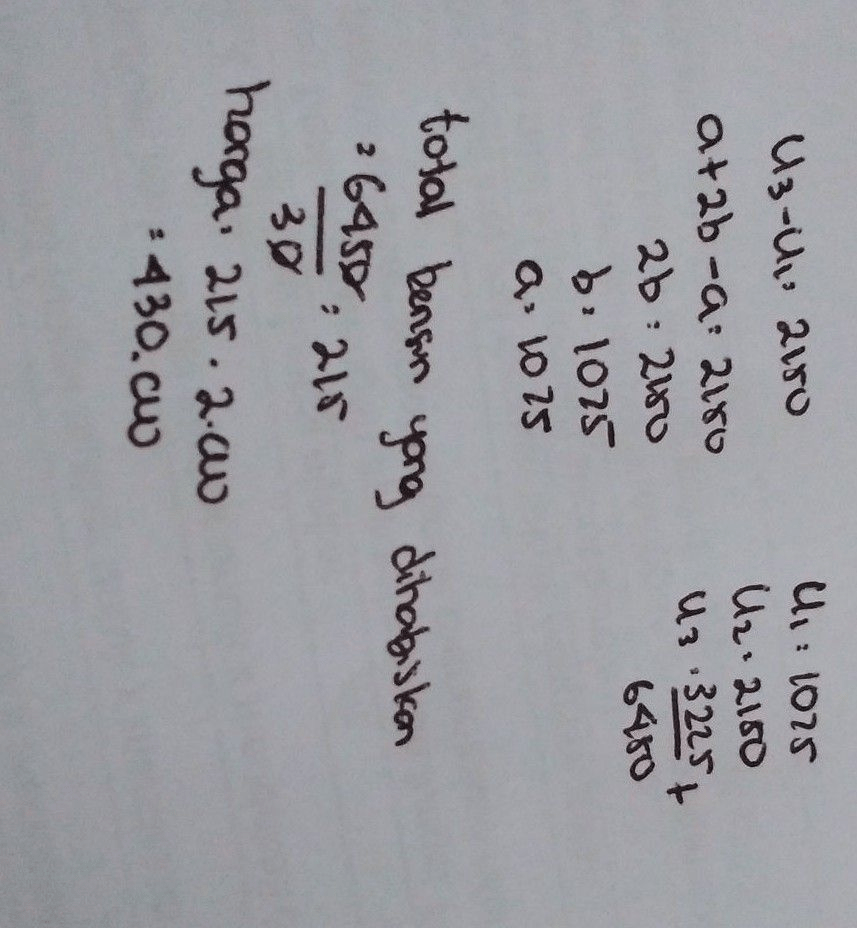 U3-U1= 2150
a+2b-a= 2150
2b = 2150
b= 1075
a= 1075
U1 = 1075
U2 = 2150
U3 = 3225 +
6450
total bensin yang dihabiskan
= 6450
30 = 215
harga = 215 . 2.000
= 430.000